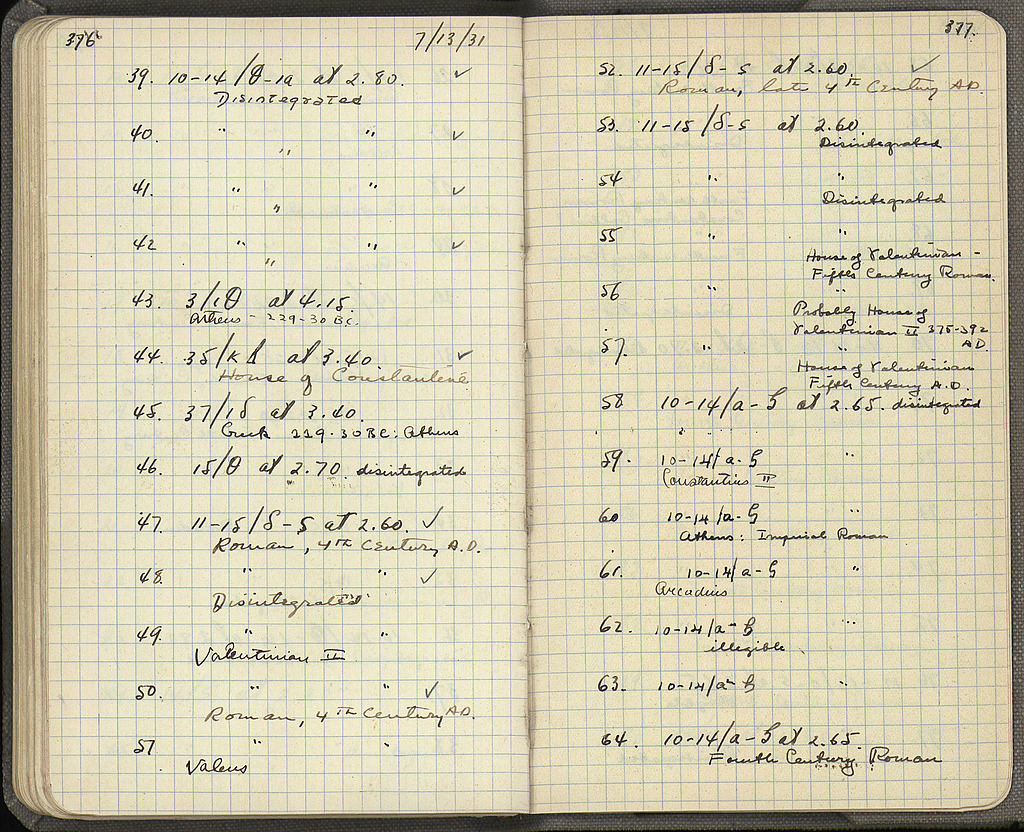 376
7/13/31
39. 10-14/θ-ια at 2.80. ✓
Disintegrated
40. " " ✓
"
41. " " ✓
"
42 " " ✓
"
43. 3/ιθ at 4.15.
Athens - 229-30 BC.
44. 35/ at 3.40 ✓
House of Constantine
45. 37/ιδ at 3.40.
Greek 229-30 BC: Athens
46. 15/θ at 2.70 disintegrated
47. 11-15/δ-ς at 2.60. ✓
Roman, 4TH Century A.D.
48. " " ✓
Disintegrated
49. " "
Valentinian II
50. " " ✓
Roman, 4TH Century AD.
51 " "
Valens
377.
52. 11-15/δ-ς at 2.60. ✓
Roman, late 4TH Century AD.
53. 11-15/δ-ς at 2.60.
Disintegrated
54 " "
Disintegrated
55 " "
House of Valentinian -
Fifth Century Roman.
56 " "
Probably House of
Valentinian II 375-392
AD.
57. " "
House of Valentinian
Fifth Century A.D.
58 10-14/α-ς at 2.65. disintegrated
59. 10-14/α-ς "
Constantius II
60 10-14/α-ς "
Athens: Imperial Roman
61. 10-14/α-ς "
Arcadius
62. 10-14/α-ς "
illegible
63. 10-14/α-ς "
64. 10-14/α-ς at 2.65.
Fourth Century Roman